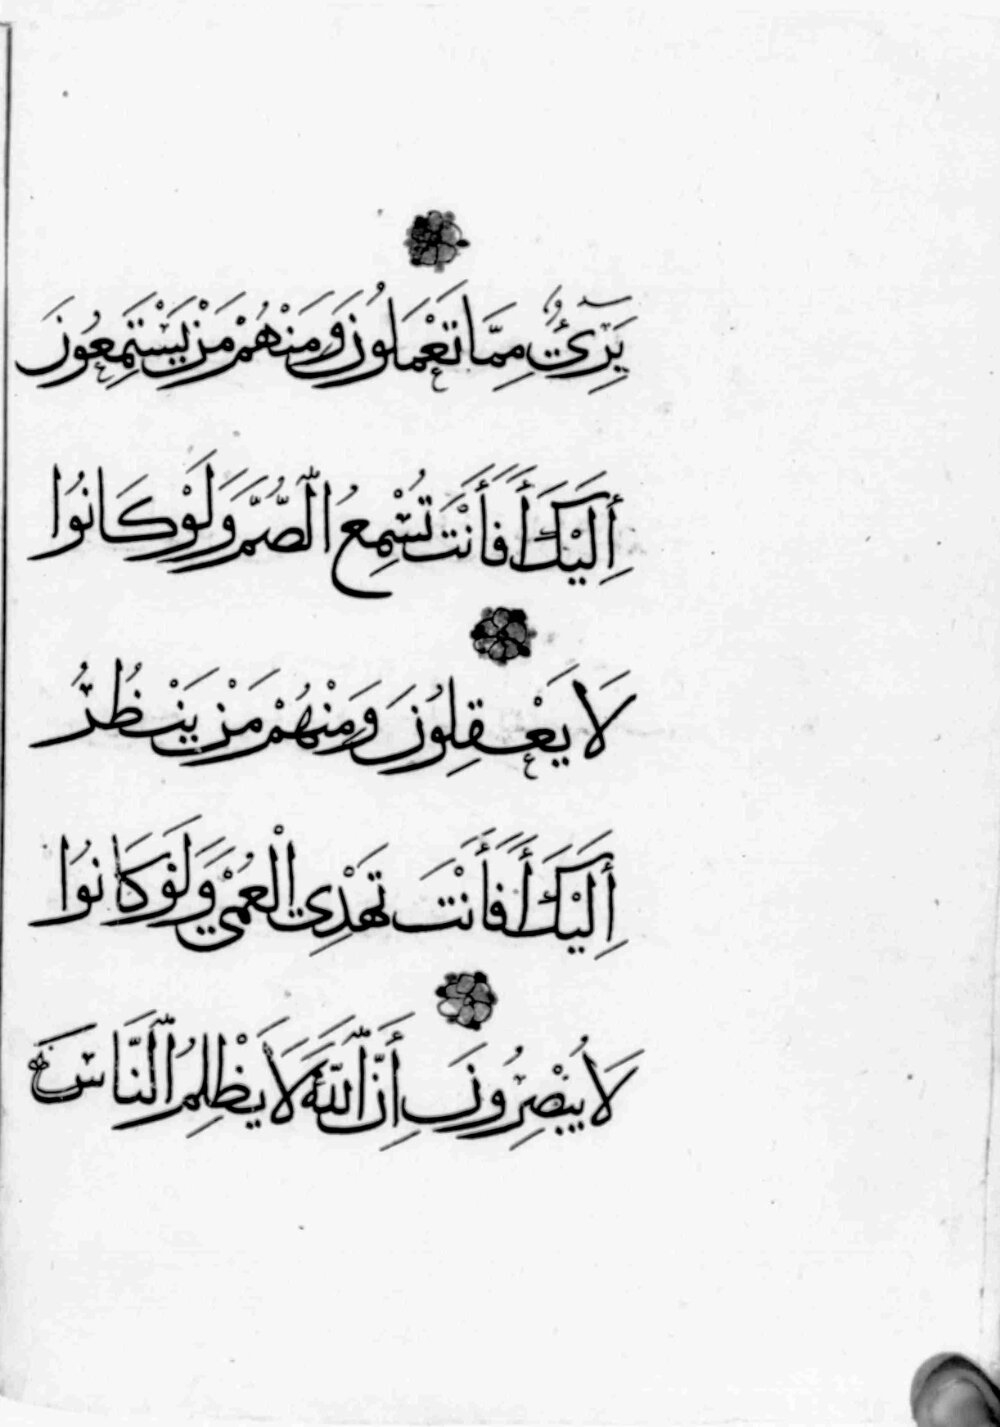 بَرِيءٌ مِمَّا تَعْمَلُونَ وَمِنْهُمْ مَنْ يَسْتَمِعُونَ
إِلَيْكَ أَفَأَنْتَ تُسْمِعُ الصُّمَّ وَلَوْ كَانُوا
لَا يَعْقِلُونَ وَمِنْهُمْ مَنْ يَنْظُرُ
إِلَيْكَ أَفَأَنْتَ تَهْدِي الْعُمْيَ وَلَوْ كَانُوا
لَا يُبْصِرُونَ إِنَّ اللَّهَ لَا يَظْلِمُ النَّاسَ